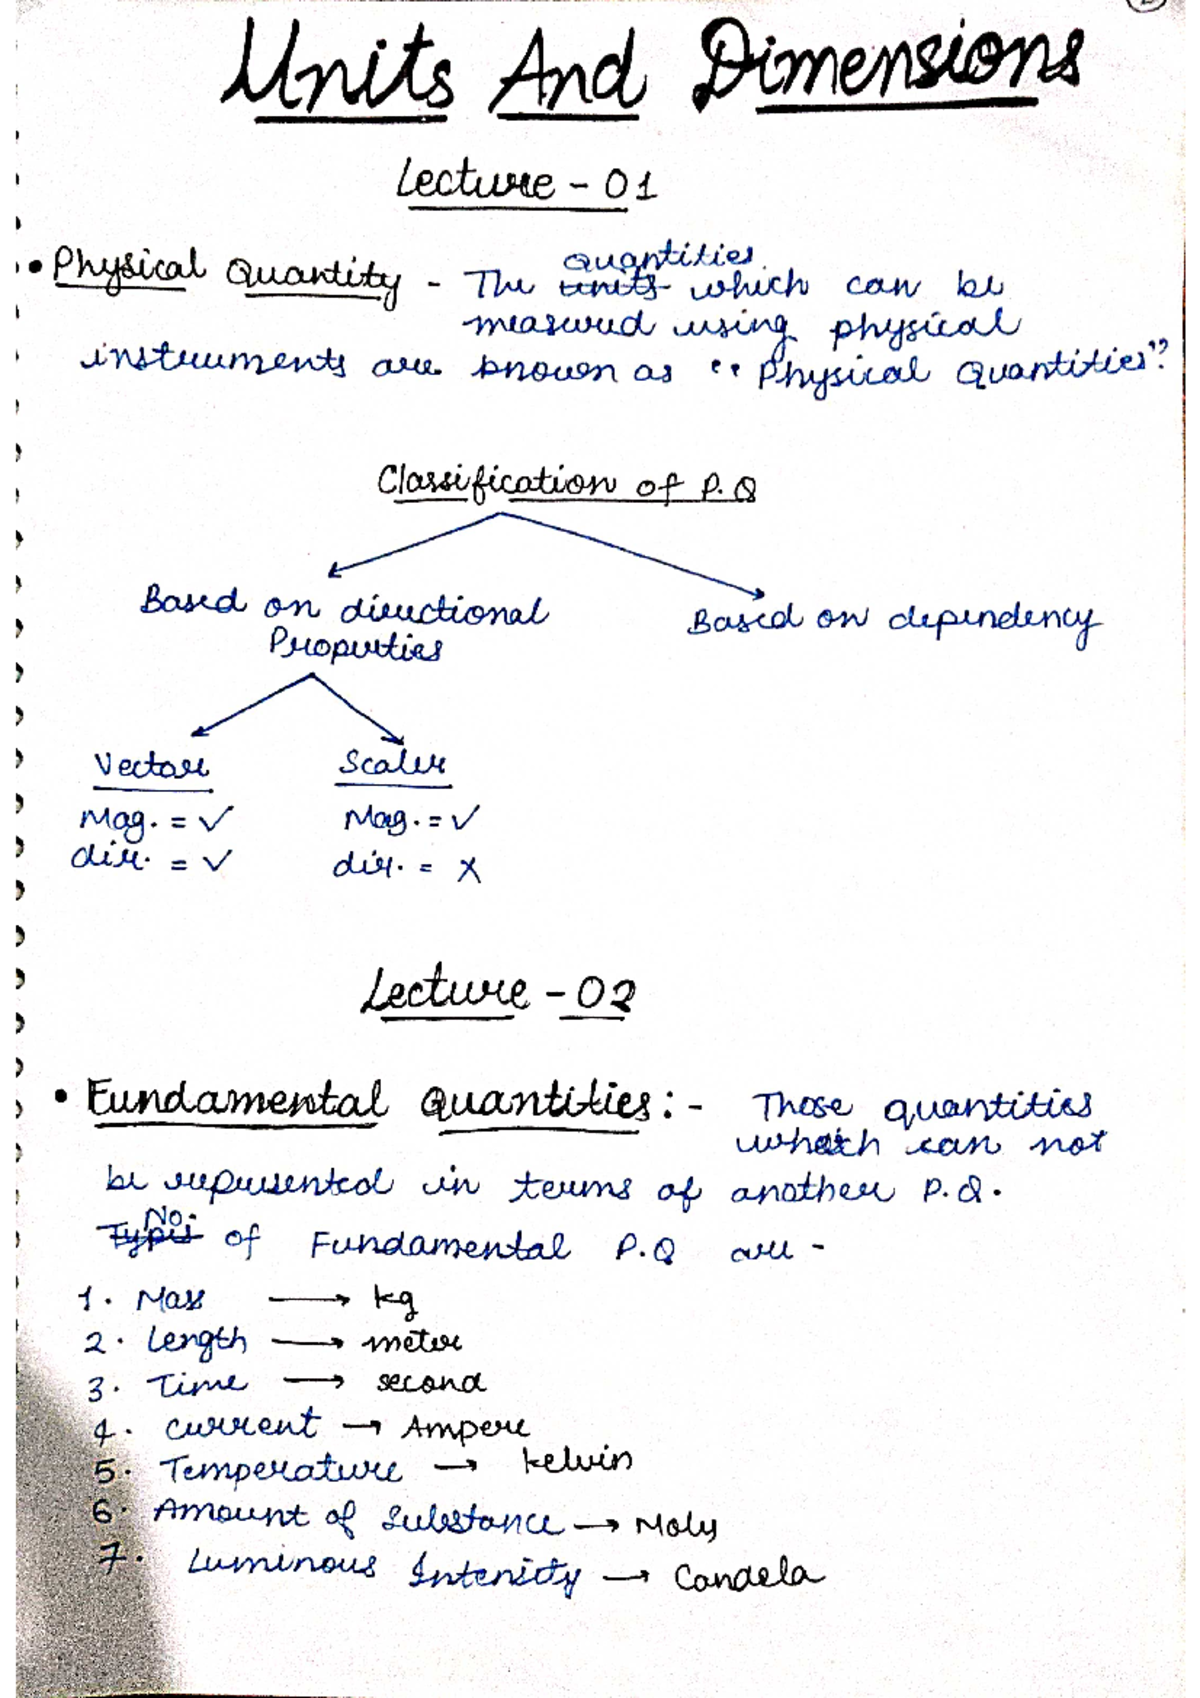 Units And Dimensions
Lecture - 01
• Physical Quantity - The units quantities which can be
measured using physical
instruments are known as "Physical Quantities"
Classification of P.Q
Based on directional
Properties
Based on dependency
Vector
Scaler
Mag. = ✓
Mag. = ✓
dir. = ✓
dir. = X
Lecture - 02
• Fundamental Quantities :- Those quantities
which can not
be represented in terms of another P.Q.
Types No. of Fundamental P.Q are -
1. Mass → kg
2. Length → meter
3. Time → second
4. Current → Ampere
5. Temperature → kelvin
6. Amount of Substance →
7. Luminous Intensity → Candela